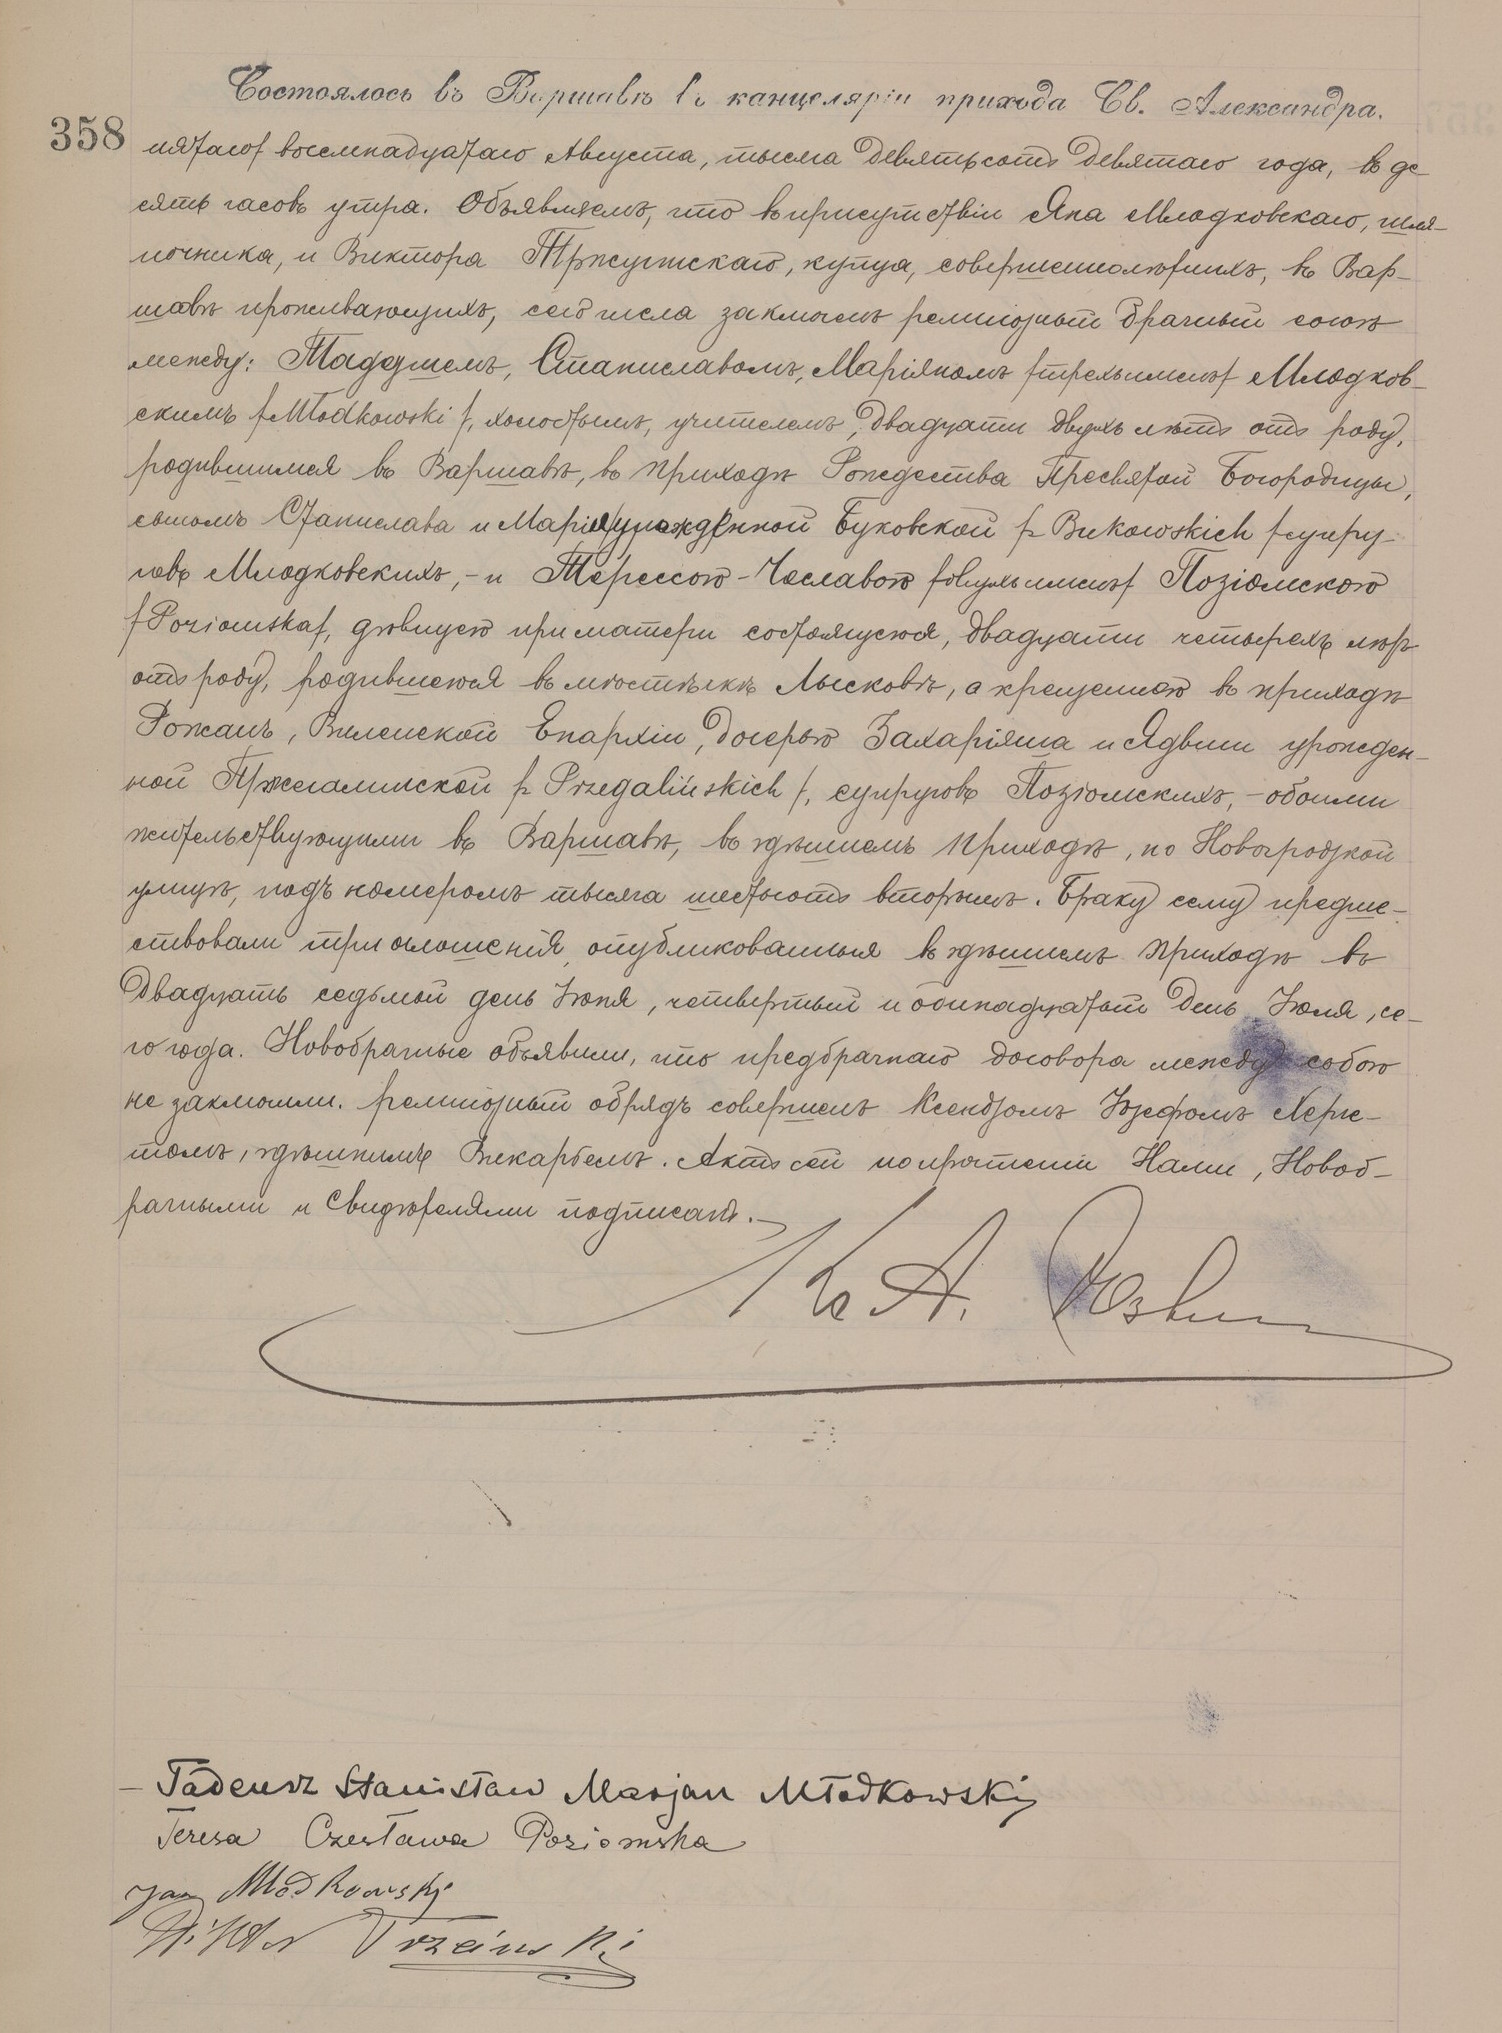 Состоялось въ Варшавѣ въ канцеляріи прихода Св. Александра.
358 пятаго/ восемнадцатаго Августа, тысяча девятьсотъ девятаго года, въ де-
сять часовъ утра. Объявляемъ, что въ присутствіи Яна Млодковскаго, шля-
почника, и Виктора Тржцинскаго, купца, совершеннолѣтнихъ, въ Вар-
шавѣ проживающихъ, сего числа заключенъ религіозный брачный союзъ
между: Таддэушемъ, Станиславомъ, Маріяномъ /трехъименъ/ Млодков-
скимъ /Młodkowski/, холостымъ, учителемъ, двадцати двухъ лѣтъ отъ роду,
родившимся въ Варшавѣ, въ приходѣ Рождества Пресвятой Богородицы,
сыномъ Станислава и Маріи урожденной Буковской /z Bukowskich/ супру-
говъ Млодковскихъ,- и Терессою-Чеславою /двухъименъ/ Позіомскою
/Poziomska/, дѣвицею при матери состоящеюся, двадцати четырехъ лѣтъ
отъ роду, родившеюся въ мѣстечкѣ Лысковѣ, а крещенною въ приходѣ
Рожанъ, Виленской Епархіи, дочерью Захаріяша и Ядвиги урожден-
ной Пржегалинской /z Przegalińskich/, супруговъ Позіомскихъ,- обоими
жительствующими въ Варшавѣ, въ здѣшнемъ приходѣ, по Новогродзкой
улицѣ, подъ номеромъ тысяча шестьсотъ вторымъ. Браку сему предше-
ствовали три оглошенія, опубликованныя въ здѣшнемъ приходѣ въ
двадцать седьмой день Іюня, четвертый и одинадцатый день Іюля, се-
го года. Новобрачные объявили, что предбрачнаго договора между собою
не заключили. религіозный обрядъ совершенъ Ксендзомъ Іозефомъ
здѣшнимъ Викаріемъ. Актъ сей по прочтеніи Нами, Новоб-
рачными и Свидѣтелями подписанъ.-
Кс А.
- Tadeusz Stanisław Marjan Młodkowski
Teresa Czesława Poziomska
Jan Młodkowski
Wiktor Trzciński